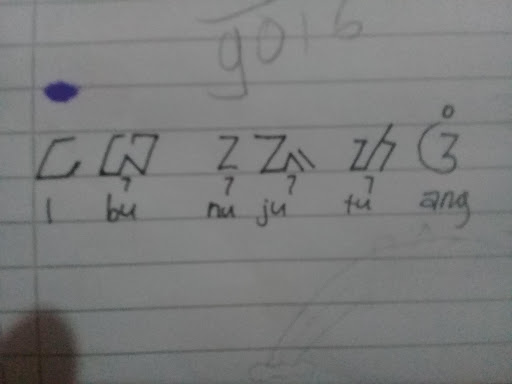 ᮄᮘᮥ ᮔᮥᮏᮥ ᮒᮥᮃᮀ
I bu nu ju tu ang